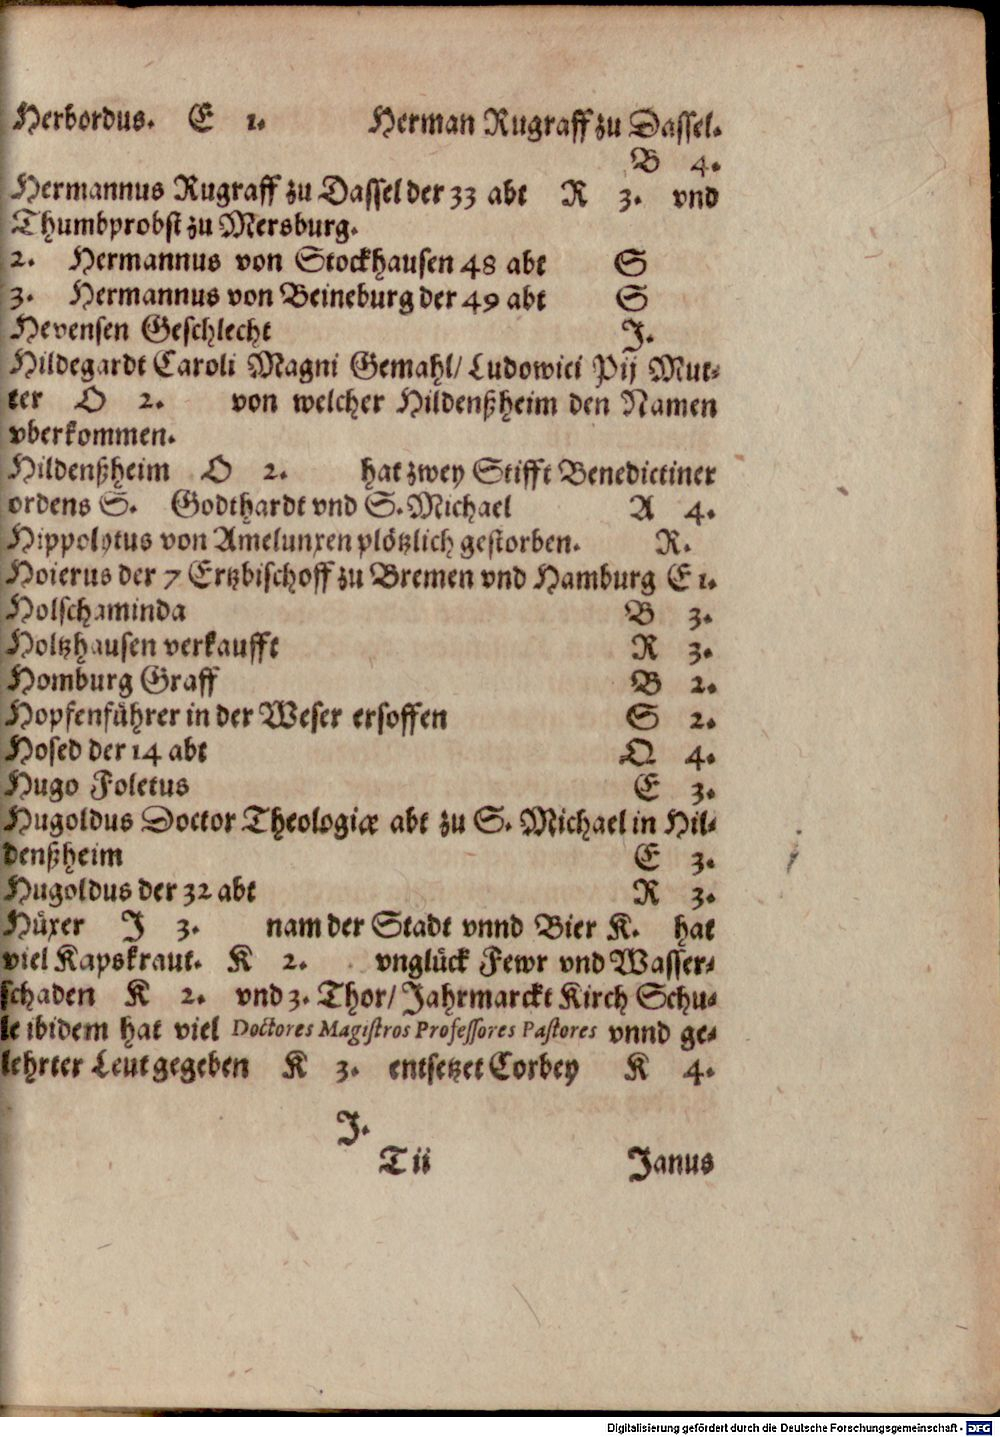 Herbordus. E 1. Herman Rugraff zu Dassel.
B 4.
Hermannus Rugraff zu Dassel der 33 abt R 3. vnd
Thumbprobst zu Mersburg.
2. Hermannus von Stockhausen 48 abt S
3. Hermannus von Beineburg der 49 abt S
Hevensen Geschlecht J.
Hildegardt Caroli Magni Gemahl/ Ludowici Pij Mut-
ter O 2. von welcher Hildenßheim den Namen
vberkommen.
Hildenßheim O 2. hat zwey Stifft Benedictiner
ordens S. Godthardt vnd S. Michael A 4.
Hippolytus von Amelunxen plötzlich gestorben. R.
Hoierus der 7 Ertzbischoff zu Bremen vnd Hamburg E 1.
Holschaminda B 3.
Holtzhausen verkaufft R 3.
Homburg Graff B 2.
Hopfenführer in der Weser ersoffen S 2.
Hosed der 14 abt Q 4.
Hugo Foletus E 3.
Hugoldus Doctor Theologiæ abt zu S. Michael in Hil-
denßheim E 3.
Hugoldus der 32 abt R 3.
Hüxer J 3. nam der Stadt vnnd Bier K. hat
viel Kapskraut. K 2. vnglück Fewr vnd Wasser-
schaden K 2. vnd 3. Thor/ Jahrmarckt Kirch Schu-
le ibidem hat viel Doctores Magistros Professores Pastores vnnd ge-
lehrter Leut gegeben K 3. entsetzet Corbey K 4.
J.
T ii Janus
Digitalisierung gefördert durch die Deutsche Forschungsgemeinschaft - DFG